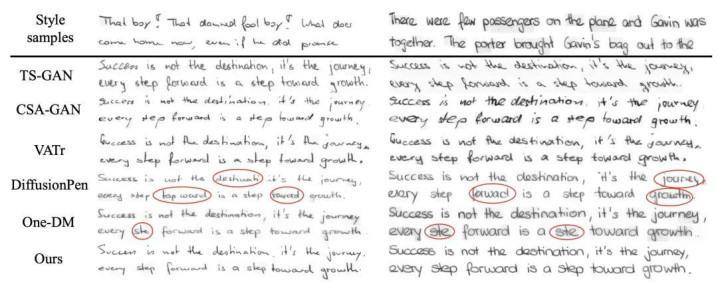 Style samples
That boy! That damned fool boy! What does
come home now, even if he did promise
There were few passengers on the plane and Gavin was
together. The porter brought Gavin's bag out to the
TS-GAN
Success is not the destination, it's the journey,
every step forward is a step toward growth.
Success is not the destination, it's the journey,
every step forward is a step toward growth.
CSA-GAN
Success is not the destination. it's the journey
every step forward is a step toward growth.
Success is not the destination. it's the journey,
every step forward is a step toward growth.
VATr
Success is not the destination, it's the journey,
every step forward is a step toward growth.
Success is not the destination, it's the journey,
every step forward is a step toward growth.
DiffusionPen
Success is not the destinati it's the journey,
every step top ward is a step roword growth.
Success is not the destination, it's the journey,
every step forwad is a step toward growth.
One-DM
Success is not the destination, it's the journey
every ste forward is a step toward growth.
Success is not the destination, it's the journey
every ste forward is a ste toward growth.
Ours
Success is not the destination. it's the journey,
every step forward is a step toward growth.
Success is not the destination, it's the journey,
every step forward is a step toward growth.